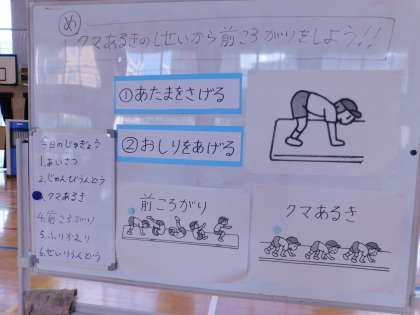 め
クマあるきのしせいから前ころがりをしよう!!
①あたまをさげる
②おしりをあげる
今日のじゅぎょう
1.あいさつ
2.じゅんびうんどう
3.クマあるき
4.前ころがり
5.ふりかえり
6.せいりうんどう
前ころがり
クマあるき